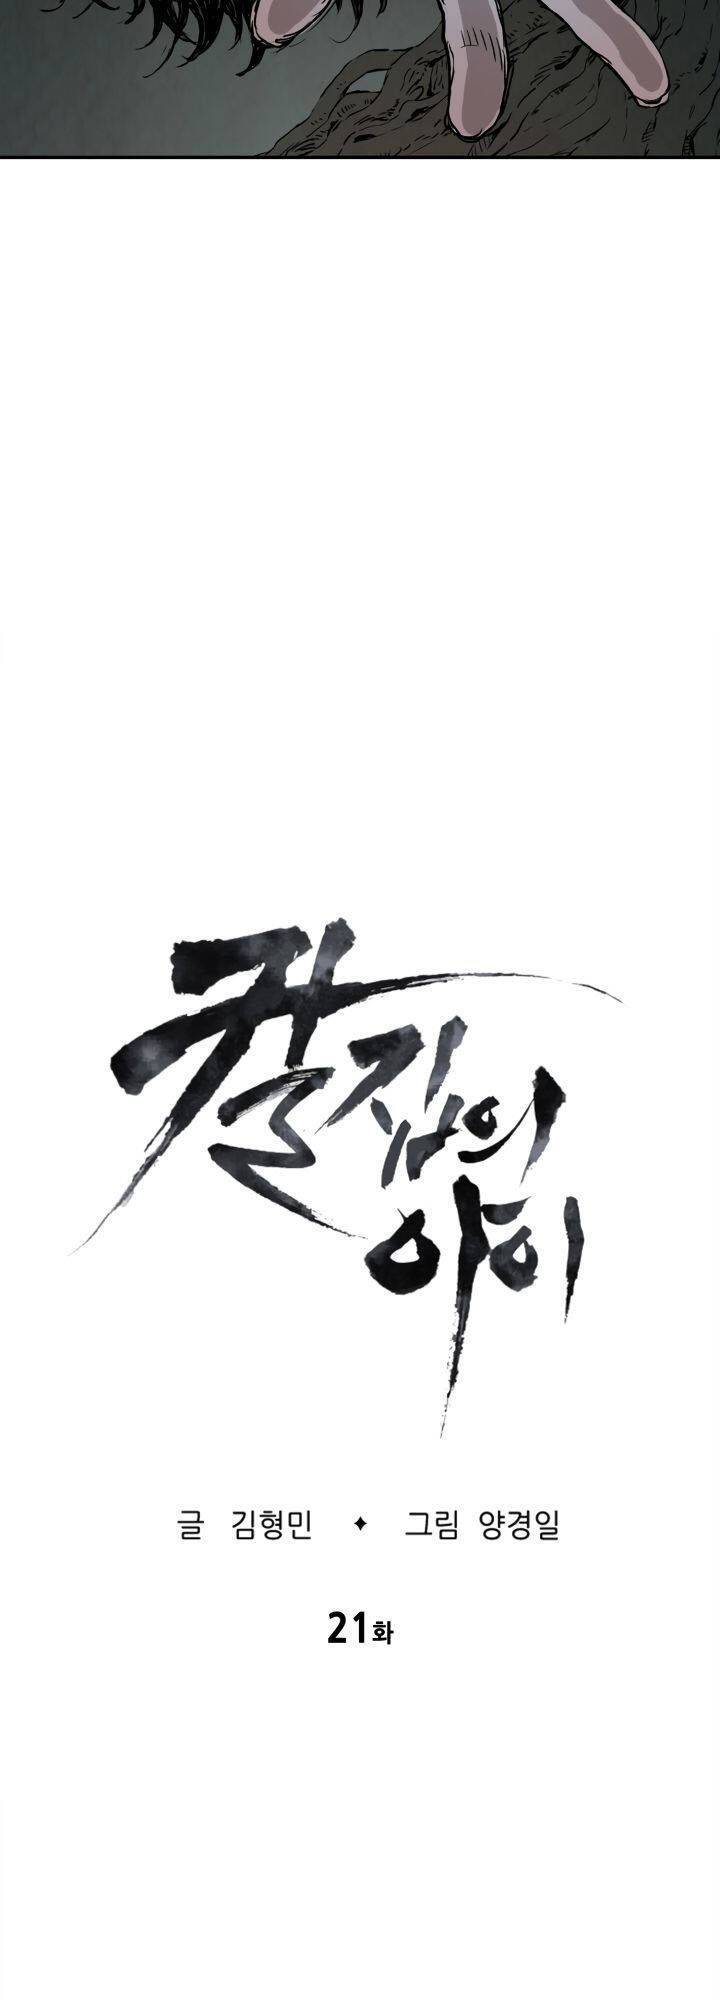 칼집의
아이
글 김형민 ✦ 그림 양경일
21화